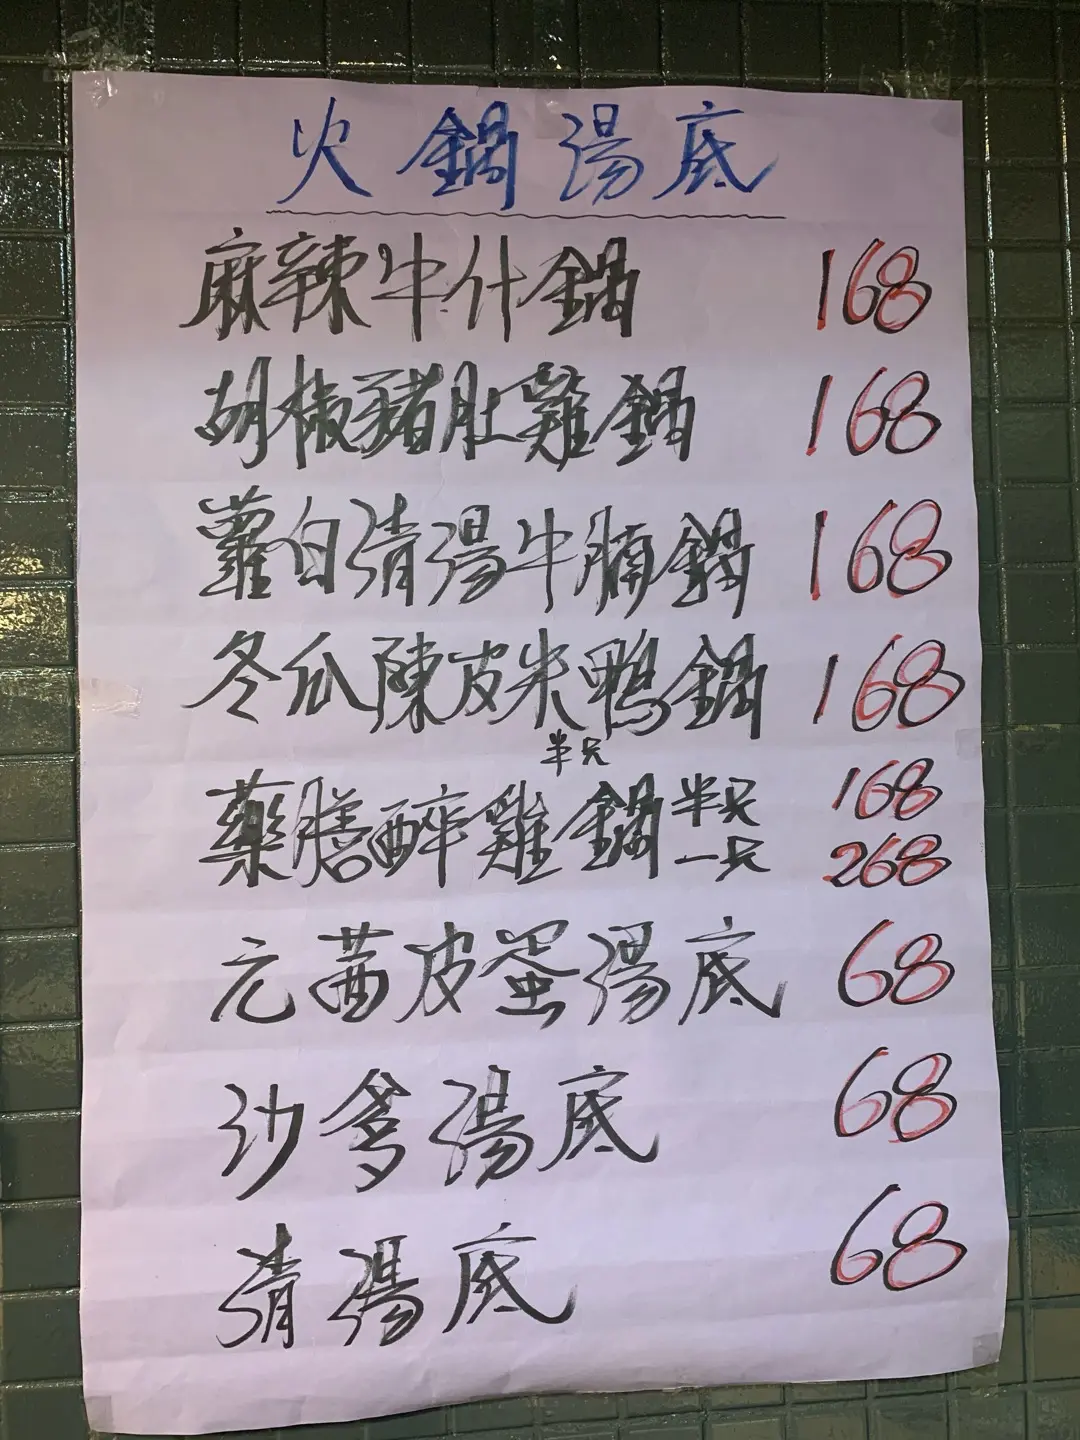 火鍋湯底
麻辣牛什鍋 168
胡椒豬肚雞鍋 168
蘿白清湯牛腩鍋 168
冬瓜陳皮米鴨鍋 168
半只
藥膳醉雞鍋 半只 168
一只 268
元茜皮蛋湯底 68
沙爹湯底 68
清湯底 68